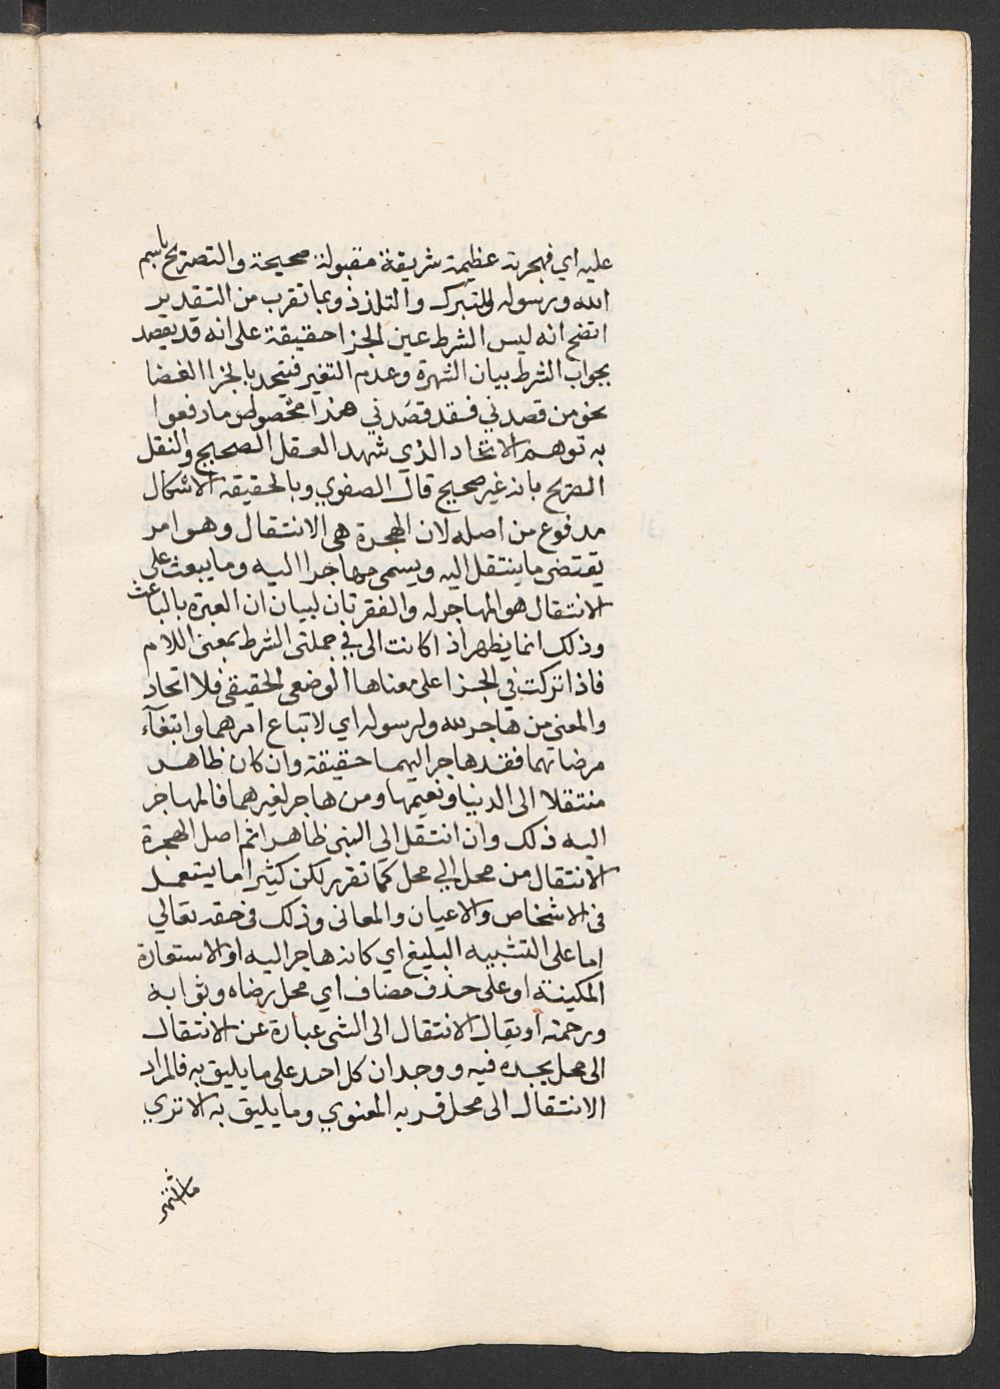 عليه اي فهجرته عظيمة شريفة مقبولة صحيحة والتصريح باسم
الله ورسوله للتبرك والتلذذ وبما تقرب من التقدير
اتضح انه ليس الشرط عين الجزا حقيقة على انه قد يقصد
بجواب الشرط بيان الشهرة وعدم التغير فيتحد بالجزا لفضا
نحو من قصدني فقد قصدني هذا محصول ما دفعوا
به توهم الاتحاد الذي شهد العقل الصحيح والنقل
الصريح بانه غير صحيح قال الصفوي وبالحقيقة الاشكال
مدفوع من اصله لان الهجرة هي الانتقال وهو امر
يقتضي ما ينتقل اليه ويسمى مهاجرا اليه وما يبعث على
الانتقال هو المهاجر له والفقرتان لبيان ان العبرة بالباعث
وذلك انما يظهر اذا كانت الى في جملتي الشرط بمعنى اللام
فاذا تركت في الجزا على معناها الوضعي الحقيقي فلا اتحاد
والمعنى من هاجر لله ولرسوله اي لاتباع امرهما وابتغآء
مرضاتهما فقد هاجر اليهما حقيقة وان كان ظاهر
منتقلا الى الدنيا ونعيمها ومن هاجر لغيرهما فالمهاجر
اليه ذلك وان انتقل الى النبى ظاهرا ثم اصل الهجرة
الانتقال من محل الي محل كما تقرر لكن كثيرا ما يستعمل
في الاشخاص والاعيان والمعاني وذلك في حقه تعالي
اما على التشبيه البليغ اي كانه هاجر اليه او الاستعارة
المكينة او على حذف مضاف اي محل رضاه وثوابه
ورحمته او يقال الانتقال الى الشى عبارة عن الانتقال
الى محل يجده فيه ووجدان كل احد على ما يليق به فالمراد
الانتقال الى محل قربه المعنوي وما يليق به الا تري
ما اشتهر